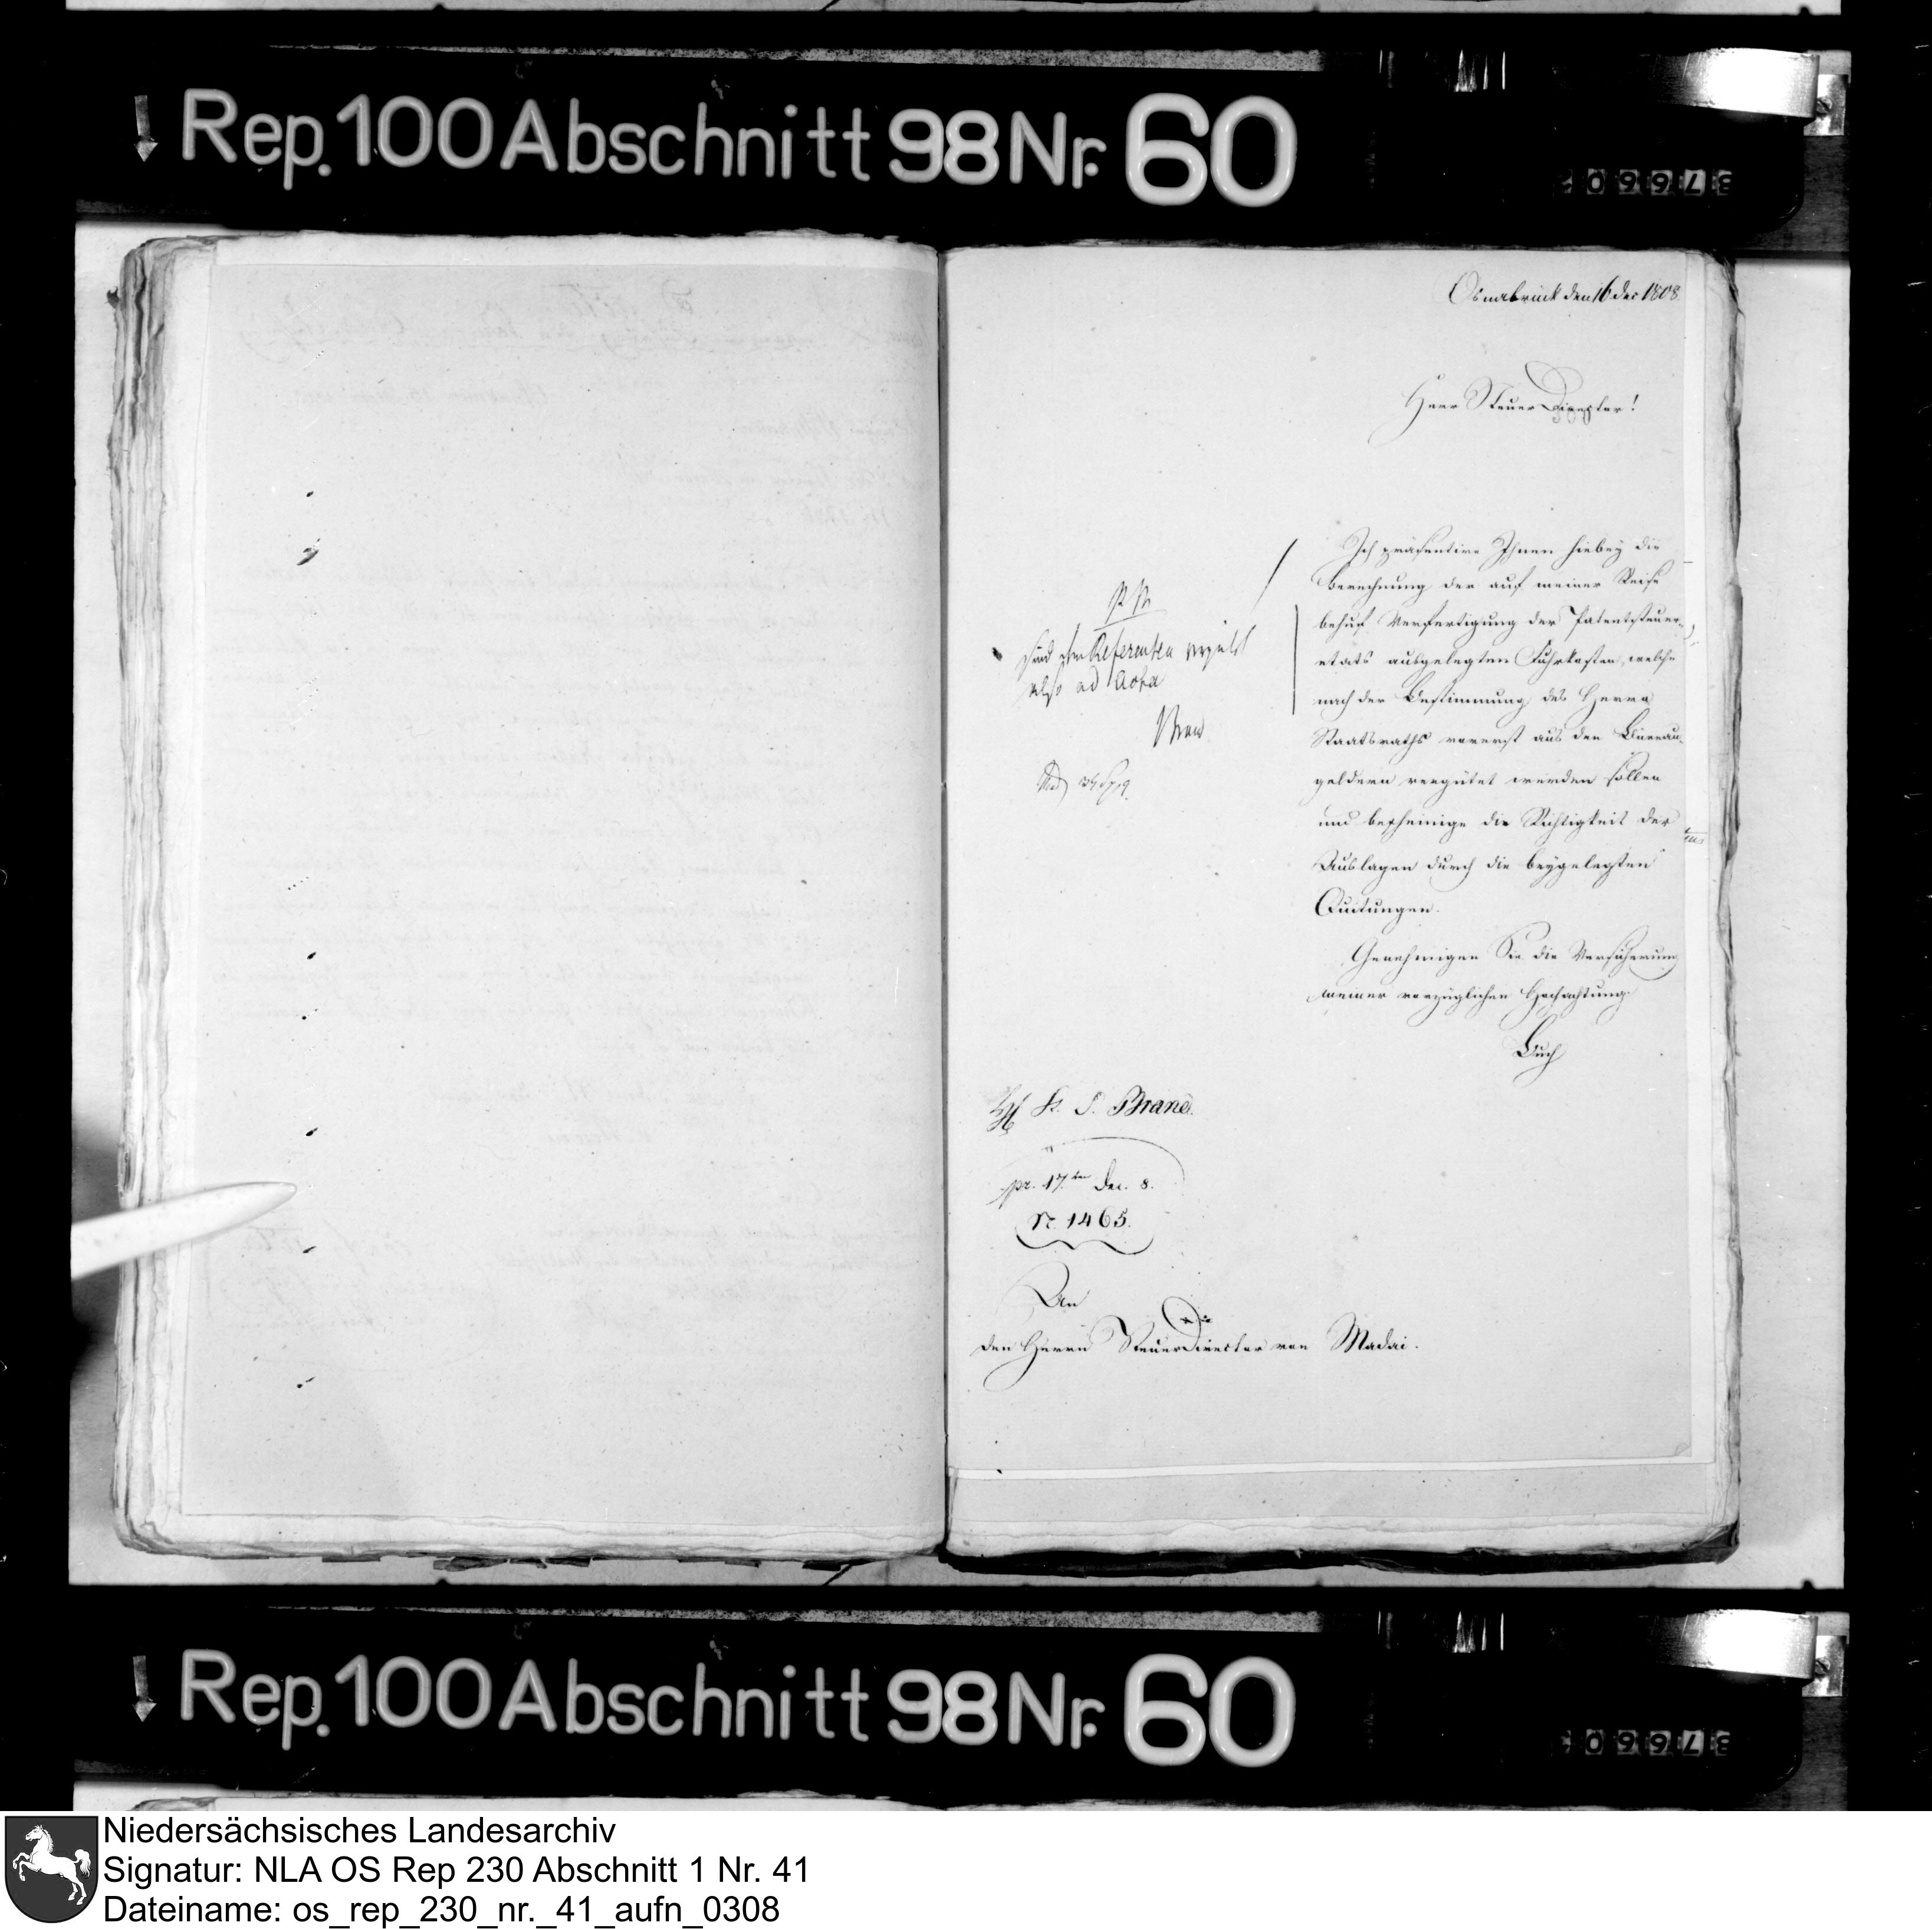 Rep. 100 Abschnitt 98 Nr. 60
376602
Osnabrück den 16 Dec 1808.
Herr Steuer Director!
Ich präsentire Ihnen hiebey die
Berechnung der auf meiner Reise
behuf Verfertigung der Patentsteuer-
etats ausgelegten Fuhrkosten, welche
nach der Bestimmung des Herrn
Staatsraths vorerst aus den Büreau-
geldern vergütet werden sollen
und bescheinige die Richtigkeit der
Auslagen durch die beygelegten
Quitungen.
Genehmigen Sie die Versicherung
meiner vorzüglichen Hochachtung.
Buch
sind dem Referenten vergütet
also ad Acta
Brand
St. S. Brand.
pr. 17ten Dec. 8.
N. 1465.
An
den Herrn Steuer Director von Madai.
Rep. 100 Abschnitt 98 Nr. 60
Niedersächsisches Landesarchiv
Signatur: NLA OS Rep 230 Abschnitt 1 Nr. 41
Dateiname: os_rep_230_nr._41_aufn_0308